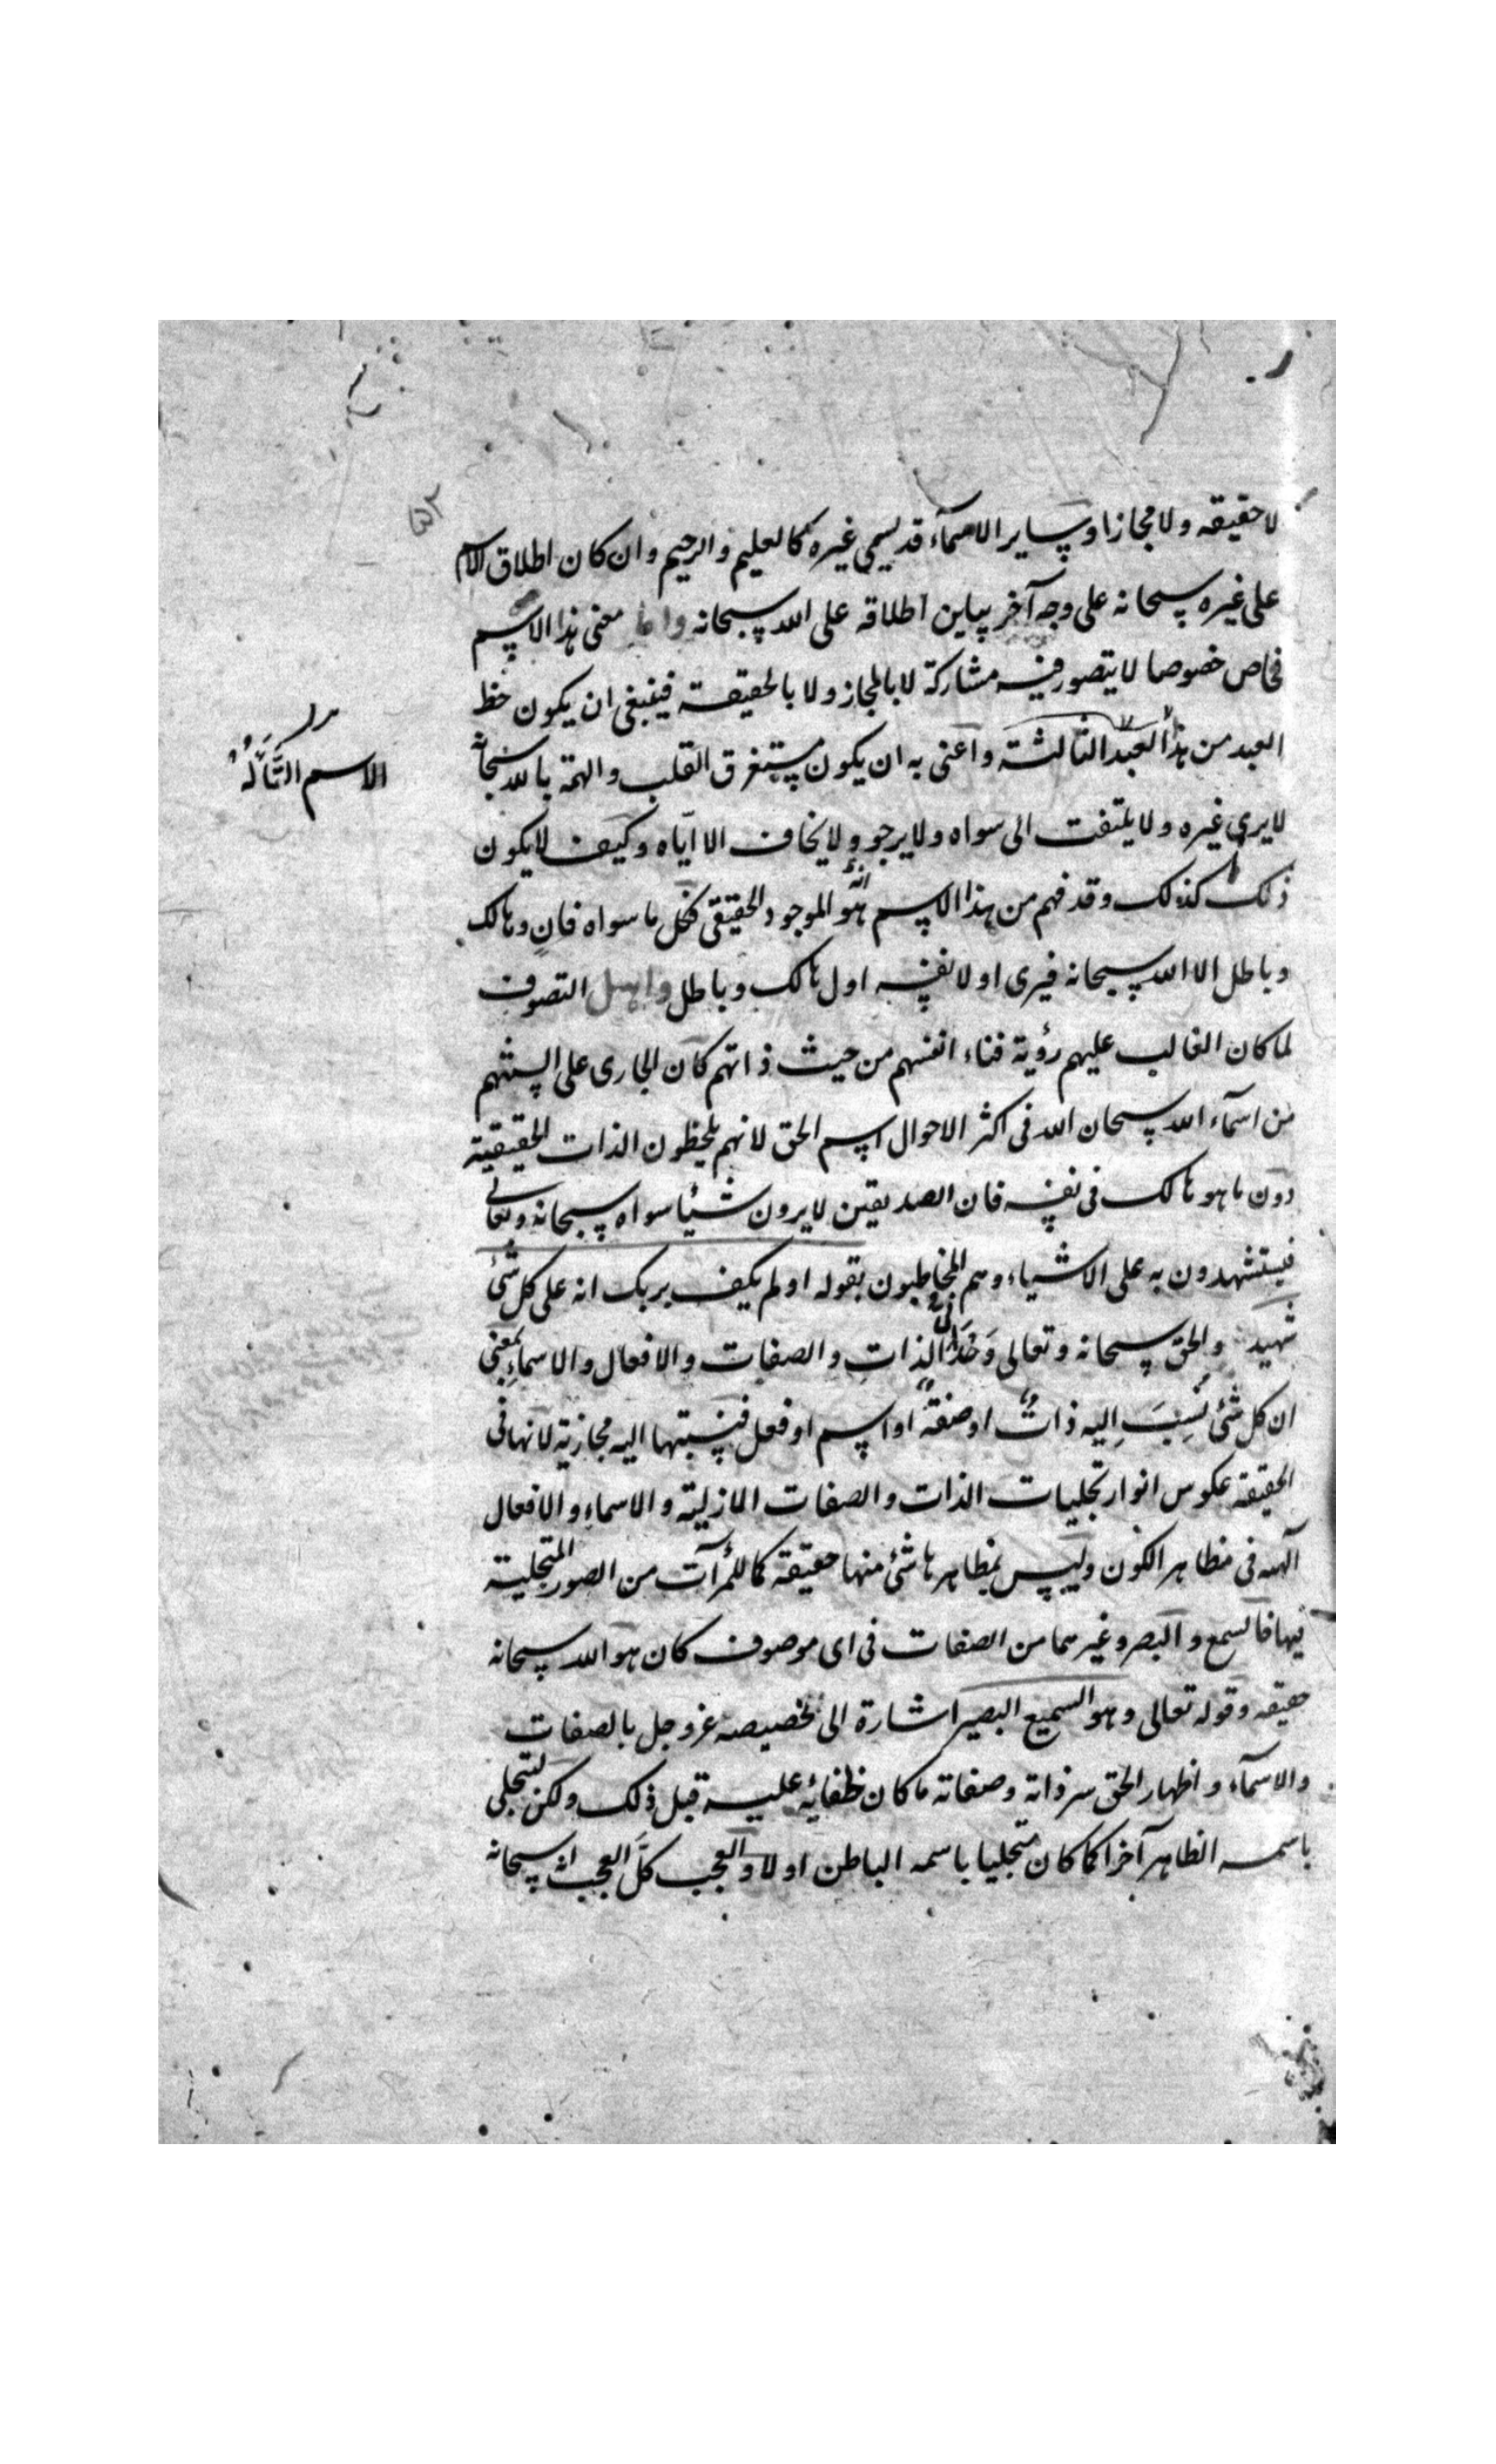 ۵۲
لا حقيقه ولا مجازا وساير الاسمآء قد يسمي غيره كالعليم والرحيم وان كان اطلاق الاسم
على غيره سبحانه على وجه آخر يباين اطلاقه على الله سبحانه واما معنى هذا الاسم
فخاص خصوصا لا يتصور فيه مشاركة لا بالمجاز ولا بالحقيقة فينبغى ان يكون حظ
العبد من هذا العبد الثالثة واعنى به ان يكون مستغرق القلب والهمة بالله سبحانه
الاسم التَّألُّهُ
لا يرى غيره ولا يلتفت الى سواه ولا يرجو ولا يخاف الا اياه وكيف لا يكون
ذلك كذلك وقد فهم من هذا الاسم انه هو الموجود الحقيقى فكل ما سواه فانٍ وهالك
وباطل الا الله سبحانه فيرى اولا نفسه اول هالك وباطل واهل التصوف
لما كان الغالب عليهم رؤية فناء انفسهم من حيث ذاتهم كان الجارى على السنتهم
من اسمآء الله سبحان الله فى اكثر الاحوال اسم الحق لانهم يلحظون الذات الحقيقية
دون ما هو هالك فى نفسه فان الصديقين لا يرون شيئا سواه سبحانه وتعالى
فيستشهدون به على الاشياء وهم المخاطبون بقوله اولم يكف بربك انه على كل شئ
شهيد والحق سبحانه وتعالى وَحْدَانِىُّ الذات والصفات والافعال والاسماءِ بمعنى
ان كل شئ نُسِبَ اِليه ذاتٌ او صفةٌ او اسم او فعل فنسبتها اليه مجازية لانها فى
الحقيقة عكوس انوار تجليات الذات والصفات الازلية والاسماءِ والافعال
آلهه فى مظاهر الكون وليس بمظاهرها شئ منها حقيقة كاللمرآت من الصور المتجلية
فيها فالسمع والبصر وغيرهما من الصفات فى اى موصوف كان هو الله سبحانه
حقيقه وقوله تعالى وهو السميع البصير اشارة الى تخصيصه عز وجل بالصفات
والاسمآء واظهار الحق سر ذاته وصفاته ما كان لخفائه عليه قبل ذلك ولكن لتجلى
باسمه الظاهر آخرا كما كان متجليا باسمه الباطن اولا والعجب كلَّ العجب انه سبحانه